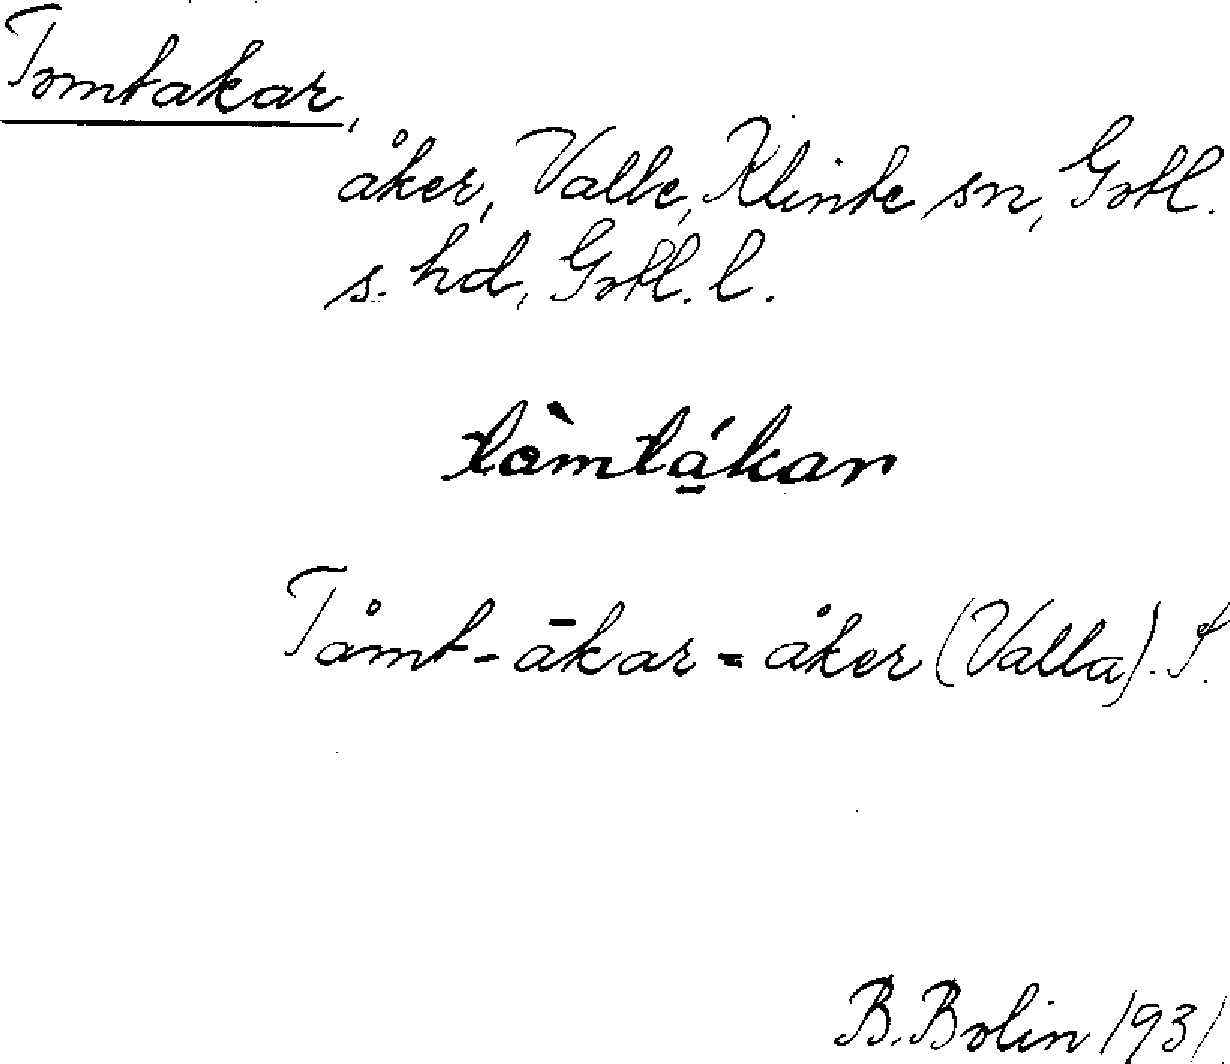 Tomtakar,
åker, Valle, Klinte sn, Gotl.
s. hd, Gotl. l.
tòmtákar
Tåmt-ākar = åker (Valla).
B. Bolin 1931